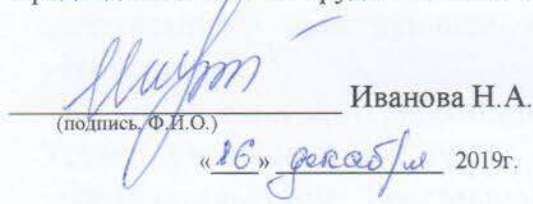 Иванова Н.А.
(подпись, Ф.И.О.)
«16» декабря 2019г.